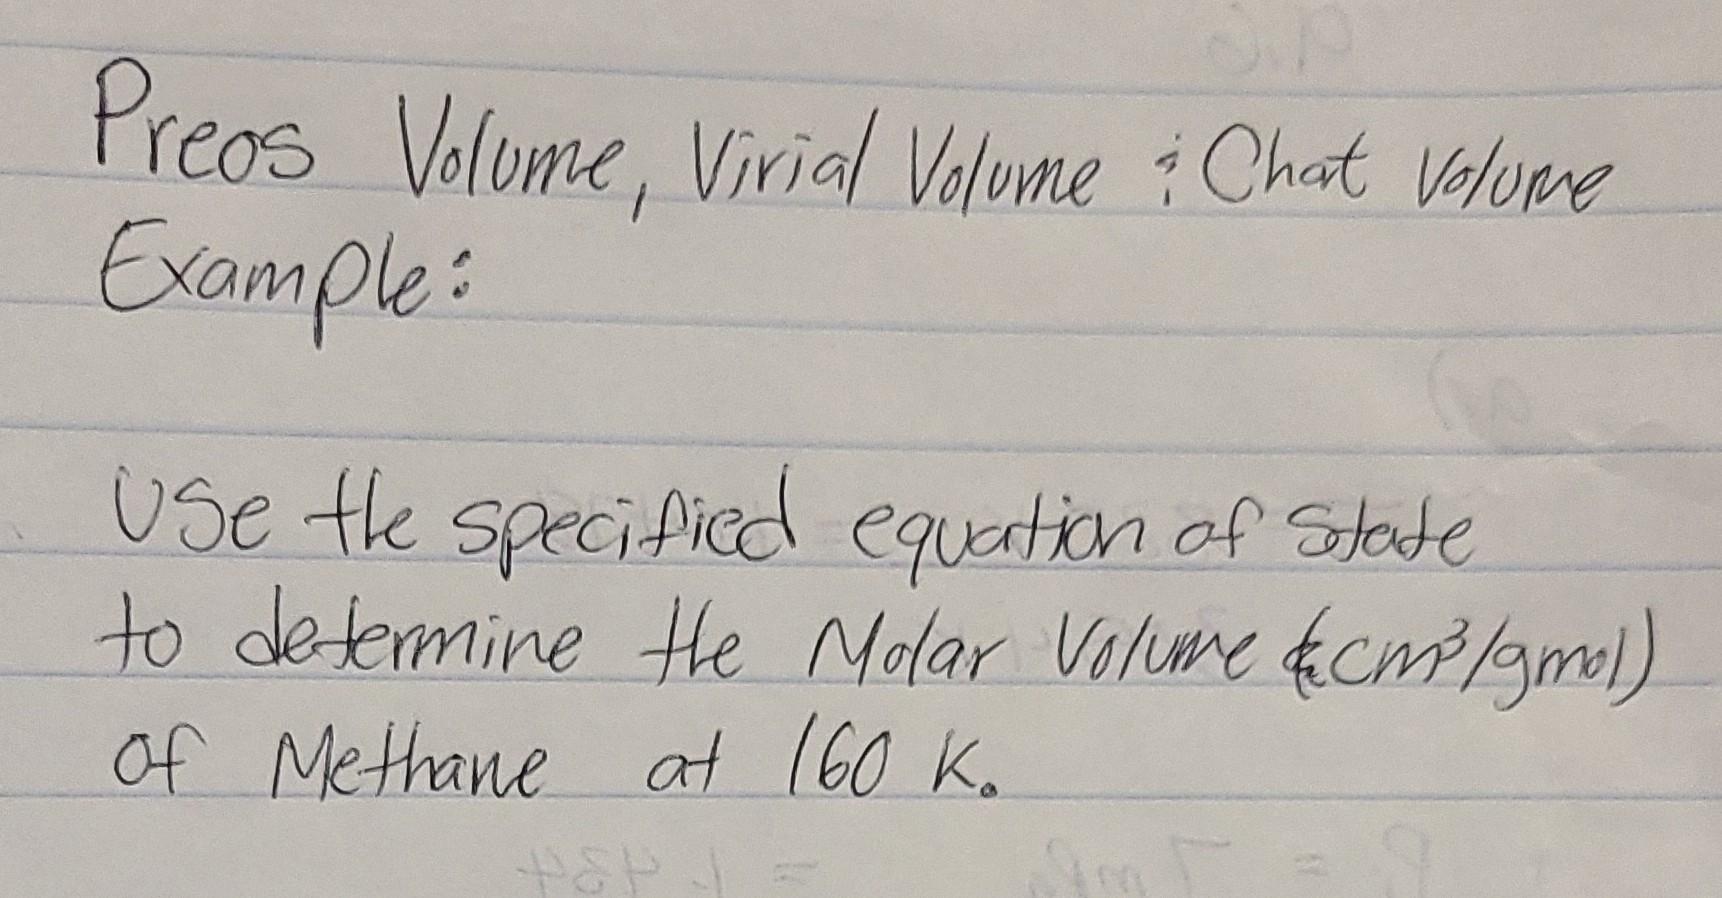 Preos Volume, Virial Volume & Chart Volume
Example:
Use the specified equation of state
to determine the Molar Volume (cm³/gmol)
of Methane at 160 K.